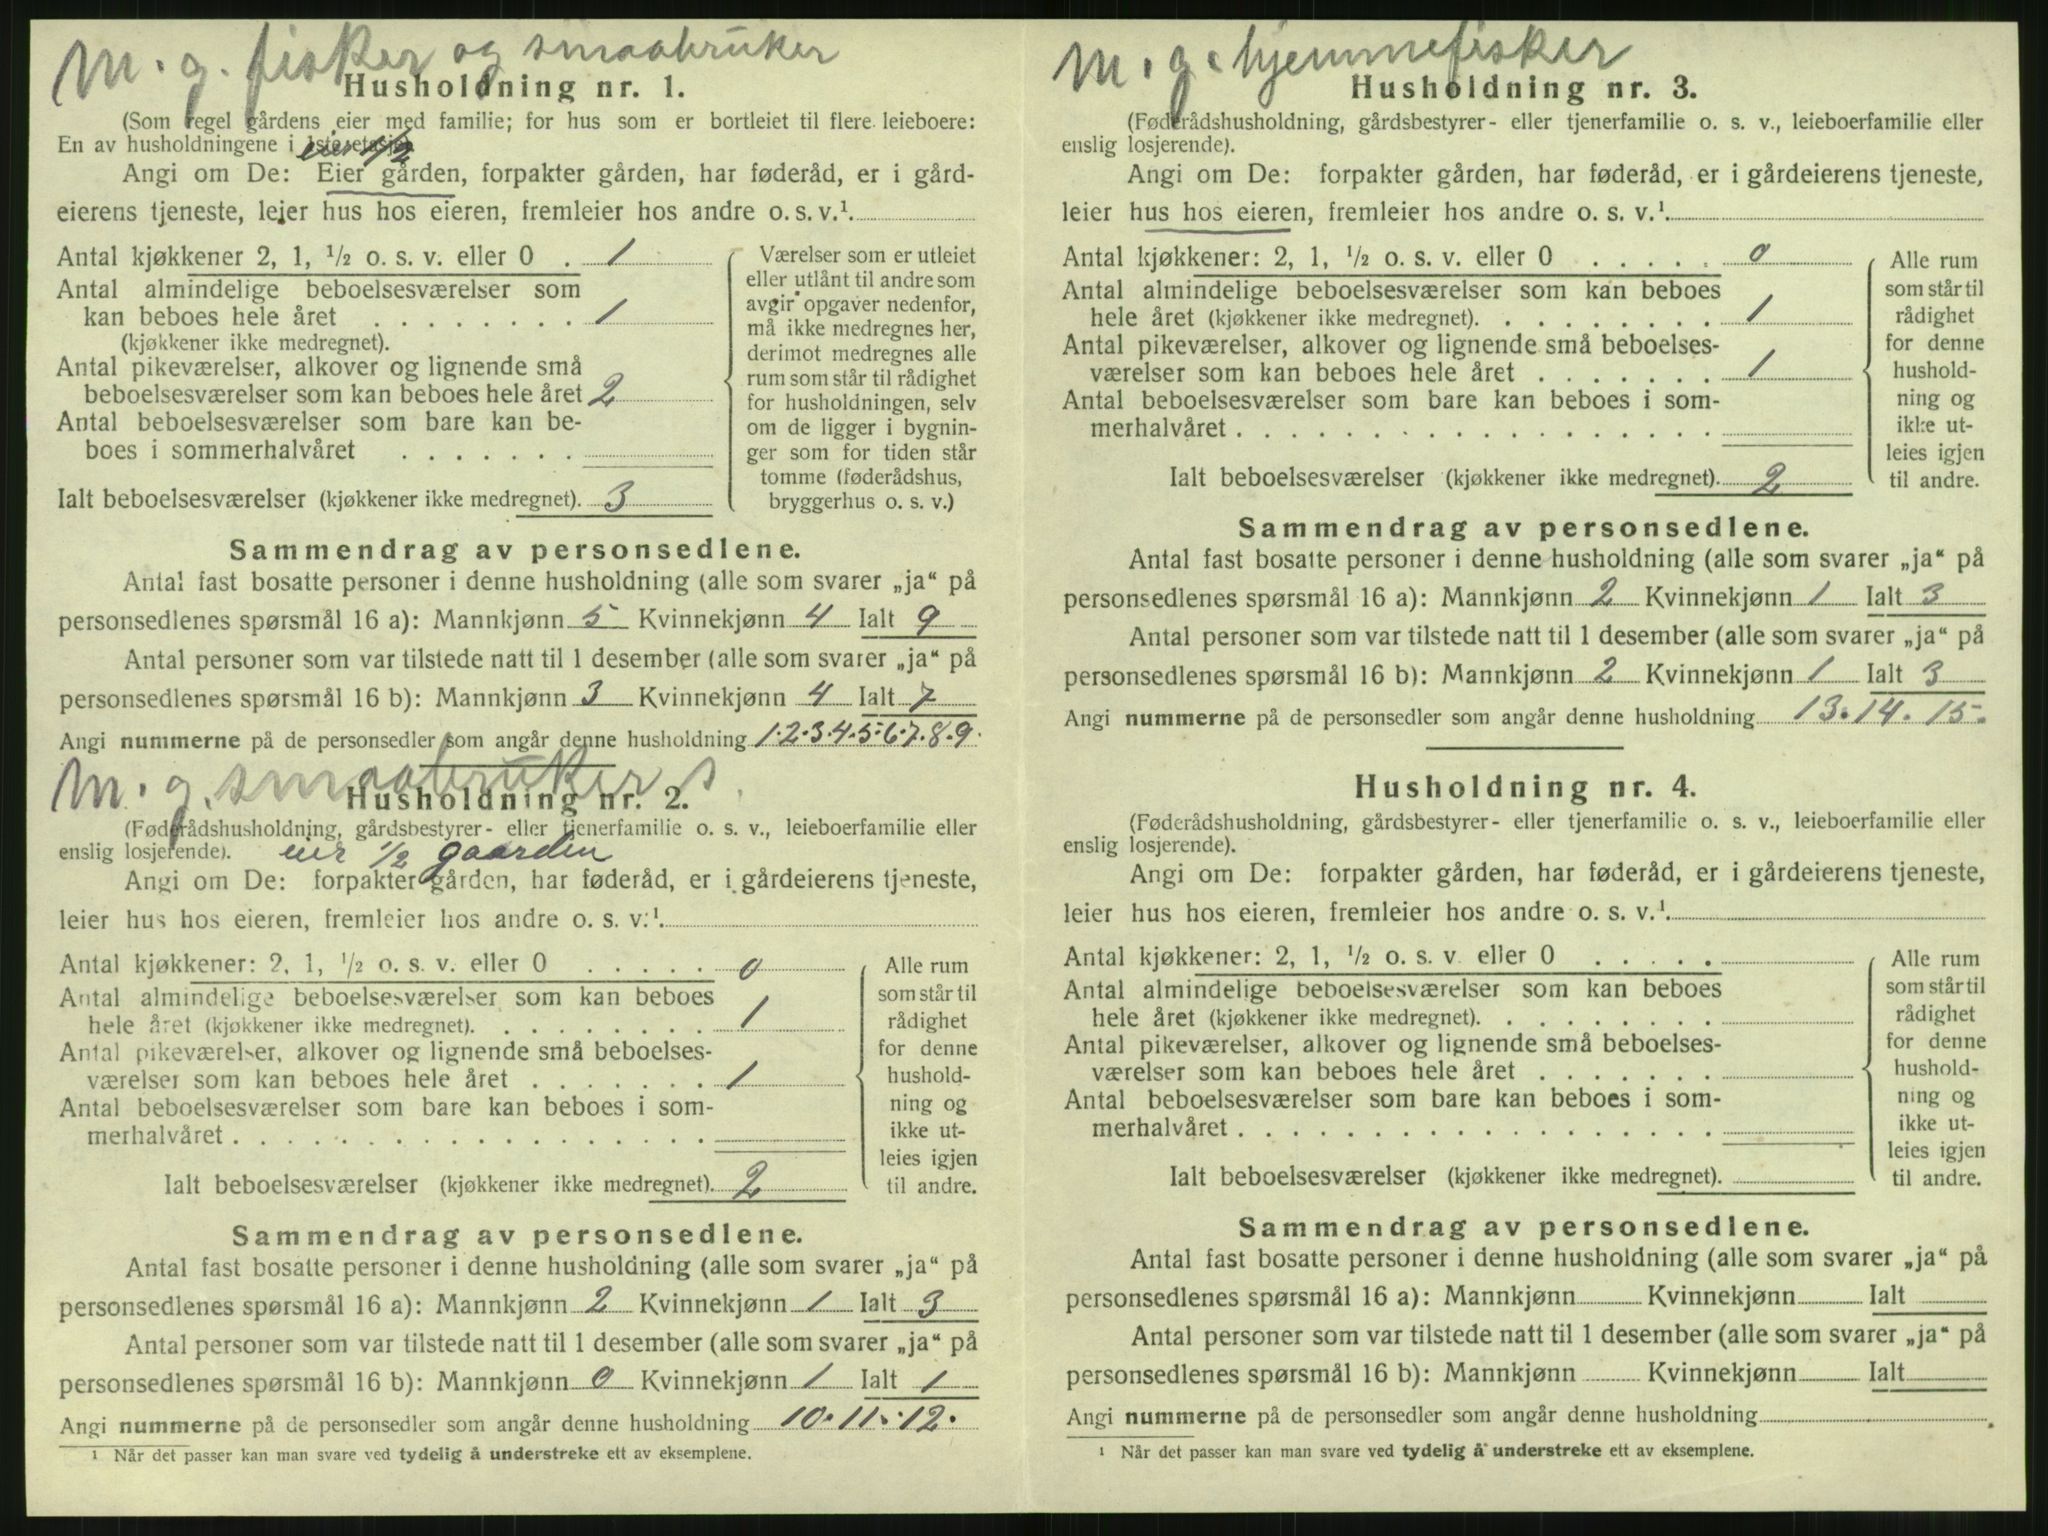 M. g. fisker og smaabruker
Husholdning nr. 1.
(Som regel gårdens eier med familie; for hus som er bortleiet til flere leieboere:
En av husholdningene i 1ste etasje)
eier 1/2
Angi om De: Eier gården, forpakter gården, har føderåd, er i gård-
eierens tjeneste, leier hus hos eieren, fremleier hos andre o. s. v.¹
Antal kjøkkener 2, 1, ½ o. s. v. eller 0 . 1
Antal almindelige beboelsesværelser som
kan beboes hele året . . . . . . . . 1
(kjøkkener ikke medregnet).
Antal pikeværelser, alkover og lignende små
beboelsesværelser som kan beboes hele året 2
Antal beboelsesværelser som bare kan be-
boes i sommerhalvåret . . . . . . .
Ialt beboelsesværelser (kjøkkener ikke medregnet). 3
Værelser som er utleiet
eller utlånt til andre som
avgir opgaver nedenfor,
må ikke medregnes her,
derimot medregnes alle
rum som står til rådighet
for husholdningen, selv
om de ligger i bygnin-
ger som for tiden står
tomme (føderådshus,
bryggerhus o. s. v.)
Sammendrag av personsedlene.
Antal fast bosatte personer i denne husholdning (alle som svarer „ja“ på
personsedlenes spørsmål 16 a): Mannkjønn 5 Kvinnekjønn 4 Ialt 9
Antal personer som var tilstede natt til 1 desember (alle som svarer „ja“ på
personsedlenes spørsmål 16 b): Mannkjønn 3 Kvinnekjønn 4 Ialt 7
Angi nummerne på de personsedler som angår denne husholdning 1.2.3.4.5.6.7.8.9.
M. g. smaabruker s.
Husholdning nr. 2.
(Føderådshusholdning, gårdsbestyrer- eller tjenerfamilie o. s. v., leieboerfamilie eller
enslig losjerende). eier 1/2 gaarden
Angi om De: forpakter gården, har føderåd, er i gårdeierens tjeneste,
leier hus hos eieren, fremleier hos andre o. s. v.¹
Antal kjøkkener: 2, 1, ½ o. s. v. eller 0 . . . . . 0
Antal almindelige beboelsesværelser som kan beboes
hele året (kjøkkener ikke medregnet). . . . . . . . . 1
Antal pikeværelser, alkover og lignende små beboelses-
værelser som kan beboes hele året . . . . . . . 1
Antal beboelsesværelser som bare kan beboes i som-
merhalvåret . . . . . . . . . . . . . . . . . .
Ialt beboelsesværelser (kjøkkener ikke medregnet). 2
Alle rum
som står til
rådighet
for denne
hushold-
ning og
ikke ut-
leies igjen
til andre.
Sammendrag av personsedlene.
Antal fast bosatte personer i denne husholdning (alle som svarer „ja“ på
personsedlenes spørsmål 16 a): Mannkjønn 2 Kvinnekjønn 1 Ialt 3
Antal personer som var tilstede natt til 1 desember (alle som svarer „ja“ på
personsedlenes spørsmål 16 b): Mannkjønn 0 Kvinnekjønn 1 Ialt 1
Angi nummerne på de personsedler som angår denne husholdning 10. 11. 12.
¹ Når det passer kan man svare ved tydelig å understreke ett av eksemplene.
M. g. hjemmefisker
Husholdning nr. 3.
(Føderådshusholdning, gårdsbestyrer- eller tjenerfamilie o. s. v., leieboerfamilie eller
enslig losjerende).
Angi om De: forpakter gården, har føderåd, er i gårdeierens tjeneste,
leier hus hos eieren, fremleier hos andre o. s. v.¹
Antal kjøkkener: 2, 1, ½ o. s. v. eller 0 . . . . . 0
Antal almindelige beboelsesværelser som kan beboes
hele året (kjøkkener ikke medregnet). . . . . . . . . 1
Antal pikeværelser, alkover og lignende små beboelses-
værelser som kan beboes hele året . . . . . . . 1
Antal beboelsesværelser som bare kan beboes i som-
merhalvåret . . . . . . . . . . . . . . . . . .
Ialt beboelsesværelser (kjøkkener ikke medregnet). 2
Alle rum
som står til
rådighet
for denne
hushold-
ning og
ikke ut-
leies igjen
til andre.
Sammendrag av personsedlene.
Antal fast bosatte personer i denne husholdning (alle som svarer „ja“ på
personsedlenes spørsmål 16 a): Mannkjønn 2 Kvinnekjønn 1 Ialt 3
Antal personer som var tilstede natt til 1 desember (alle som svarer „ja“ på
personsedlenes spørsmål 16 b): Mannkjønn 2 Kvinnekjønn 1 Ialt 3
Angi nummerne på de personsedler som angår denne husholdning 13. 14. 15.
Husholdning nr. 4.
(Føderådshusholdning, gårdsbestyrer- eller tjenerfamilie o. s. v., leieboerfamilie eller
enslig losjerende).
Angi om De: forpakter gården, har føderåd, er i gårdeierens tjeneste,
leier hus hos eieren, fremleier hos andre o. s. v.¹
Antal kjøkkener: 2, 1, ½ o. s. v. eller 0 . . . . .
Antal almindelige beboelsesværelser som kan beboes
hele året (kjøkkener ikke medregnet). . . . . . . . .
Antal pikeværelser, alkover og lignende små beboelses-
værelser som kan beboes hele året . . . . . . .
Antal beboelsesværelser som bare kan beboes i som-
merhalvåret . . . . . . . . . . . . . . . . . .
Ialt beboelsesværelser (kjøkkener ikke medregnet).
Alle rum
som står til
rådighet
for denne
hushold-
ning og
ikke ut-
leies igjen
til andre.
Sammendrag av personsedlene.
Antal fast bosatte personer i denne husholdning (alle som svarer „ja“ på
personsedlenes spørsmål 16 a): Mannkjønn Kvinnekjønn Ialt
Antal personer som var tilstede natt til 1 desember (alle som svarer „ja“ på
personsedlenes spørsmål 16 b): Mannkjønn Kvinnekjønn Ialt
Angi nummerne på de personsedler som angår denne husholdning
¹ Når det passer kan man svare ved tydelig å understreke ett av eksemplene.